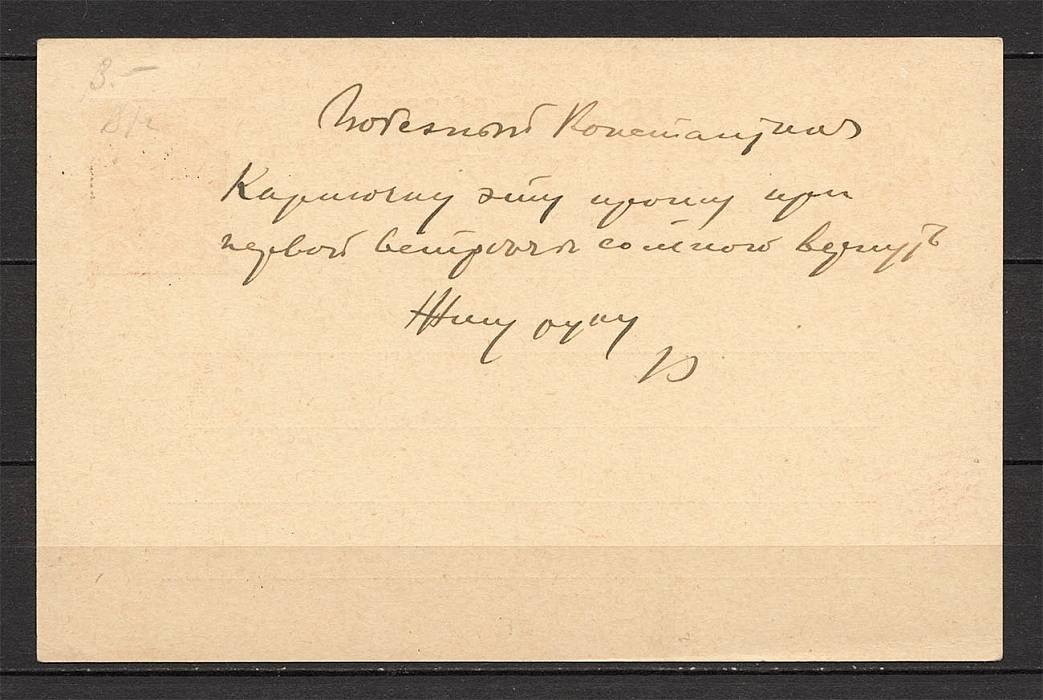 3.-
Любезный Константин
Карточку эту прошу при
первой встрече со мною вернуть
Жму руку